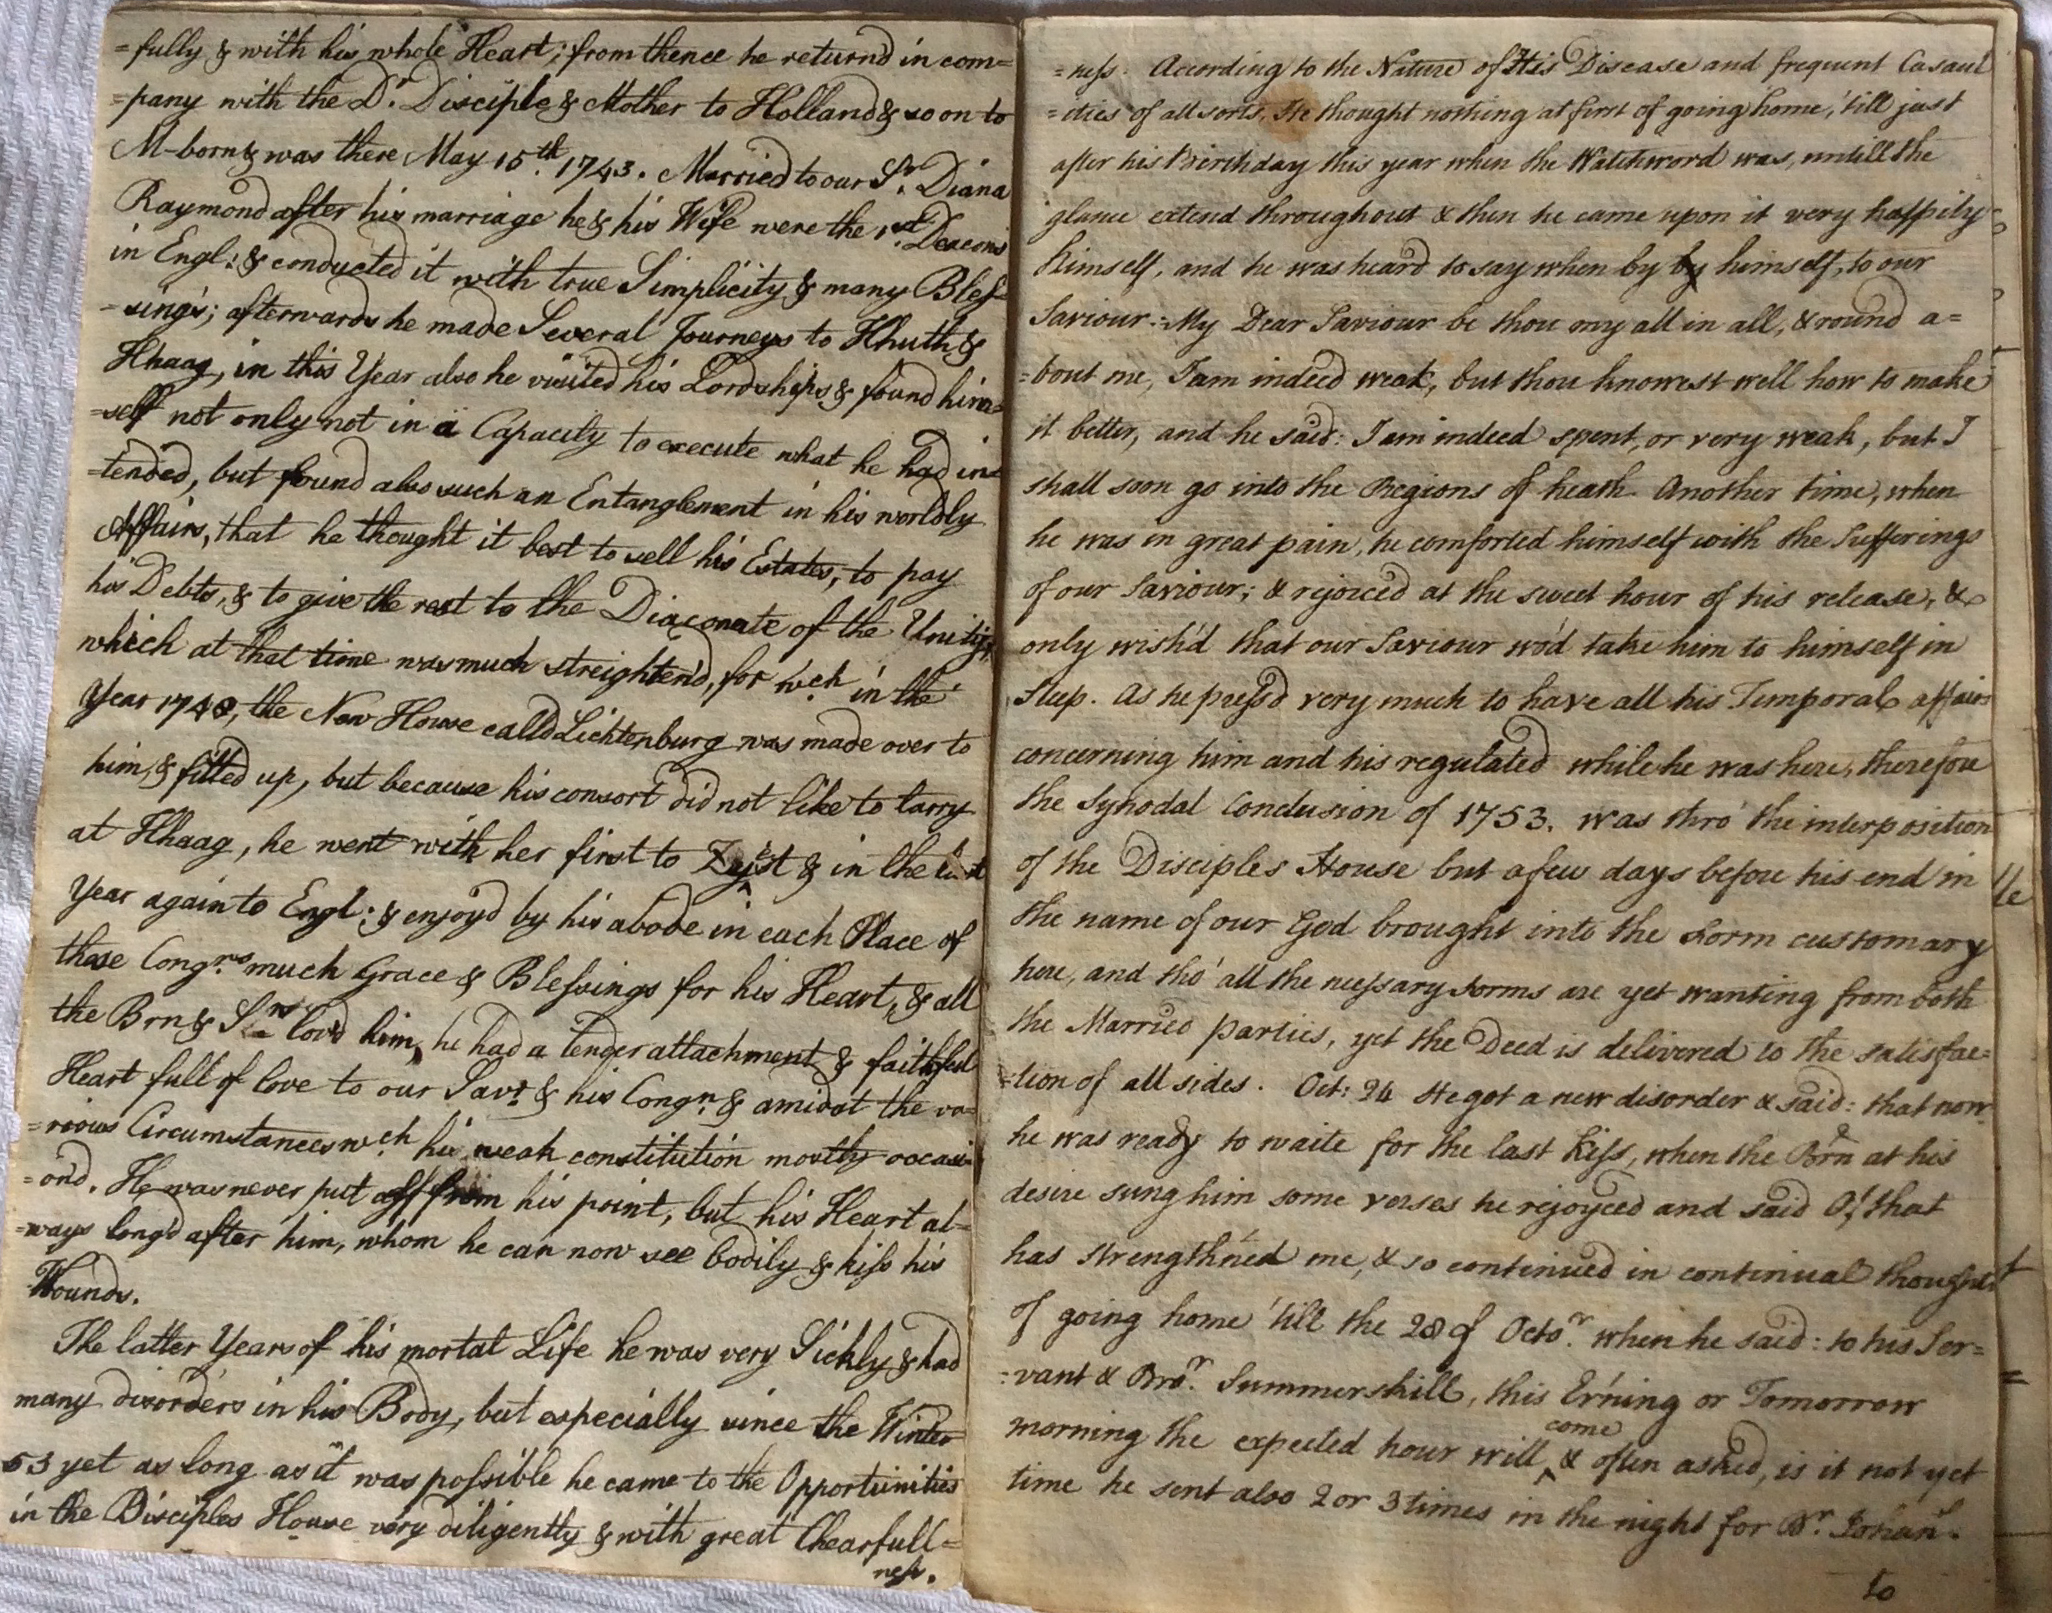 =fully & with his whole Heart; from thence he returnd in com=
=pany with the Dr. Disciple & Mother to Holland & so on to
M-born & was there May 15th. 1743. Married to our Sr. Diana
Raymond after his marriage he & his Wife were the 1st. Deacons
in Engl: & conducted it with true Simplicity & many Bles=
=sings; afterwards he made Several Journeys to Hhuth &
Hhaag, in this Year also he visited his Lordships & found him=
=self not only not in a Capacity to execute what he had in=
=tended, but found also such an Entanglement in his worldly
Affairs, that he thought it best to sell his Estates, to pay
his Debts, & to give the rest to the Diaconate of the Unity,
which at that time was much streightend, for wch. in the
Year 1748, the New House calld Lichtenburg was made over to
him, & fitted up, but because his consort did not like to tarry
at Hhaag, he went with her first to Zeyst & in the last
Year again to Engl: & enjoyd by his abode in each Place of
these Congns. much Grace & Blessings for his Heart, & all
the Brn & Srs lovd him, he had a tender attachment & faithful
Heart full of love to our Savr. & his Congn. & amidst the va=
=rious Circumstances wch. his weak constitution mostly occasi=
=ond. He was never put off from his point, but his Heart al=
=ways longd after him, whom he can now see bodily & kiss his
Wounds.
The latter Years of his mortal Life he was very Sickly & had
many disorders in his Body, but especially since the Winter
53 yet as long as it was possible he came to the Opportunities
in the Disciples House very diligently & with great Chearfull=
ness.
=ness. According to the Nature of His Disease and frequent Casaul
=ties of all sorts, He thought nothing at first of going home, 'till just
after his Birthday this year when the Watchword was, untill the
glance extend throughout & then he came upon it very happily
himself, and he was heard to say when by by himself, to our
Saviour: My Dear Saviour be thou my all in all, & round a=
=bout me, I am indeed weak, but thou knowest well how to make
it better, and he said: I am indeed spent, or very weak, but I
shall soon go into the Regions of heath. Another time, when
he was in great pain, he comforted himself with the Sufferings
of our Saviour; & rejoiced at the sweet hour of his release, &
only wish'd that our Saviour wo'd take him to himself in
Sleep. As he press'd very much to have all his Temporal affairs
concerning him and his regulated while he was here, therefore
the Synodal Conclusion of 1753. was thro' the interposition
of the Disciples House but a few days before his end in
the name of our God brought into the Form customary
here, and tho' all the nessary Forms are yet wanting from both
the Married parties, yet the Deed is delivered to the satisfac=
=tion of all sides. Oct: 24 He got a new disorder & said: that now
he was ready to waite for the last Kiss, when the Brn at his
desire sung him some verses he rejoyced and said O! that
has strength'ned me, & so continued in continual thoughts
of going home 'till the 28 of Octor. when he said: to his Ser=
=vant & Bror. Summerskill, this Ev'ning or Tomorrow
morning the expected hour will come & often asked, is it not yet
time he sent also 2 or 3 times in the night for Br. Johan.
to